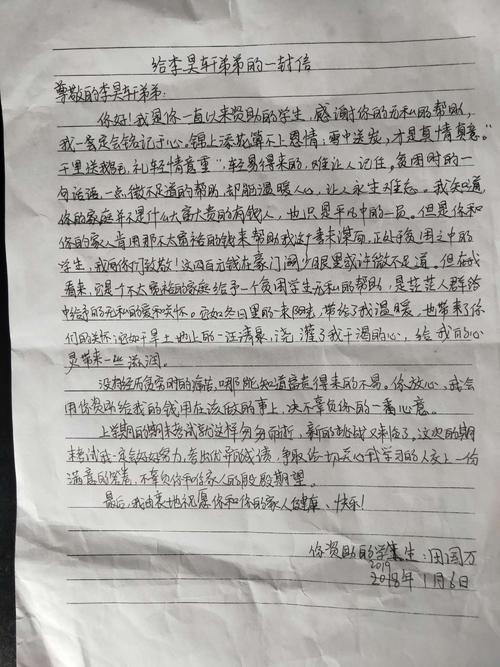 给李昊轩弟弟的一封信
尊敬的李昊轩弟弟:
你好!我是你一直以来资助的学生,感谢你的无私的帮助,
我一定会铭记于心,锦上添花算不上恩情,雪中送炭,才是真情真意。
"千里送鹅毛,礼轻情意重",轻易得来的,难让人记住,贫困时的一
句话语,一点微不足道的帮助,却能温暖人心,让人永生难忘。我知道
你的家庭并不是什么大富大贵的有钱人,也只是平凡中的一员。但是你和
你的家人肯用那不太富裕的钱来帮助我这个素未谋面,正处于贫困之中的
学生,我向你们致敬!这四百元钱在豪门阔少眼里或许微不足道。但在我
看来,它是个不太富裕的家庭给予一个贫困学生无私的帮助,是茫茫人群给
中给予的无私的爱和关怀。宛如冬日里的一束阳光,带给了我温暖,也带来了你
们的关怀;宛如干旱土地上的一汪清泉,浇灌了我干渴的心,给我的心
灵带来一些滋润。
没有经历贫穷时的痛苦,哪能知道富贵得来的不易。你放心,我会
用你资助给我的钱用在该做的事上,决不辜负你的一番心意。
上学期的期末考试就这样匆匆而逝,新的挑战又来临了。这次的期
末考试我一定会好好努力,考出优异的成绩,争取给一切关心我学习的人交上一份
满意的答卷,不辜负你和你家人的殷殷期望。
最后,我由衷地祝愿你和你的家人健康、快乐!
你资助的学生:田国万
2019
2018年1月6日